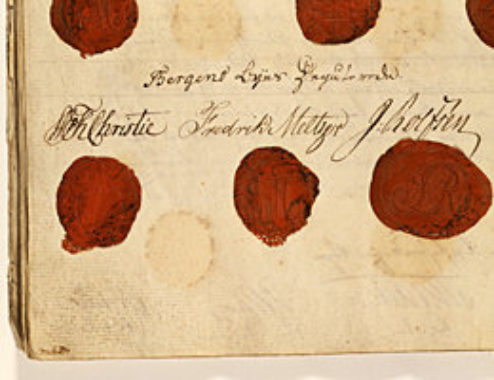 Bergens Byes Deputerede.
WFKChristie Fredrik Meltzer J. Rolfsen